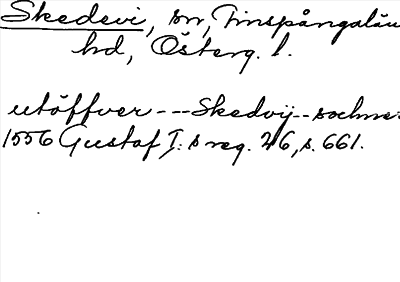 Skedevi, sn, Finspångalän
hd, Österg. l.
utöffver --- Skedvij -- sochner
1556 Gustaf I:s reg. 26, s. 661.